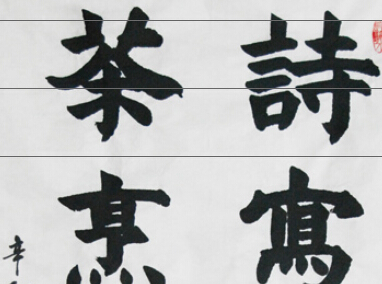 詩寫
茶烹
辛